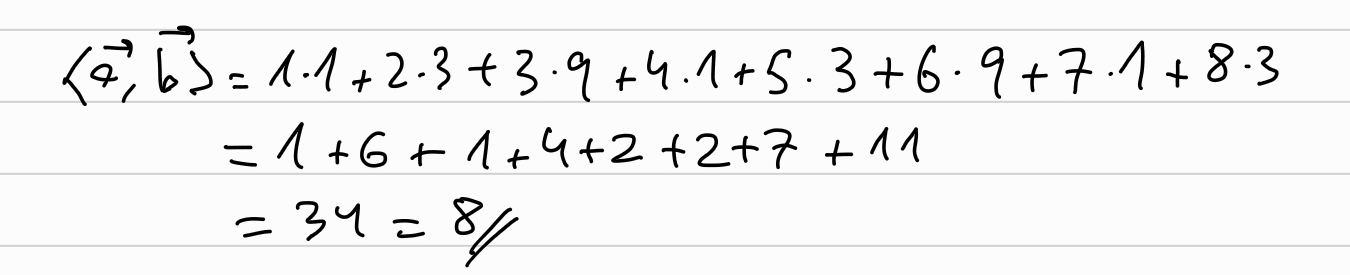 ⟨a⃗, b⃗⟩ = 1·1 + 2·3 + 3·9 + 4·1 + 5·3 + 6·9 + 7·1 + 8·3
= 1 + 6 + 1 + 4 + 2 + 2 + 7 + 11
= 34 = 8//